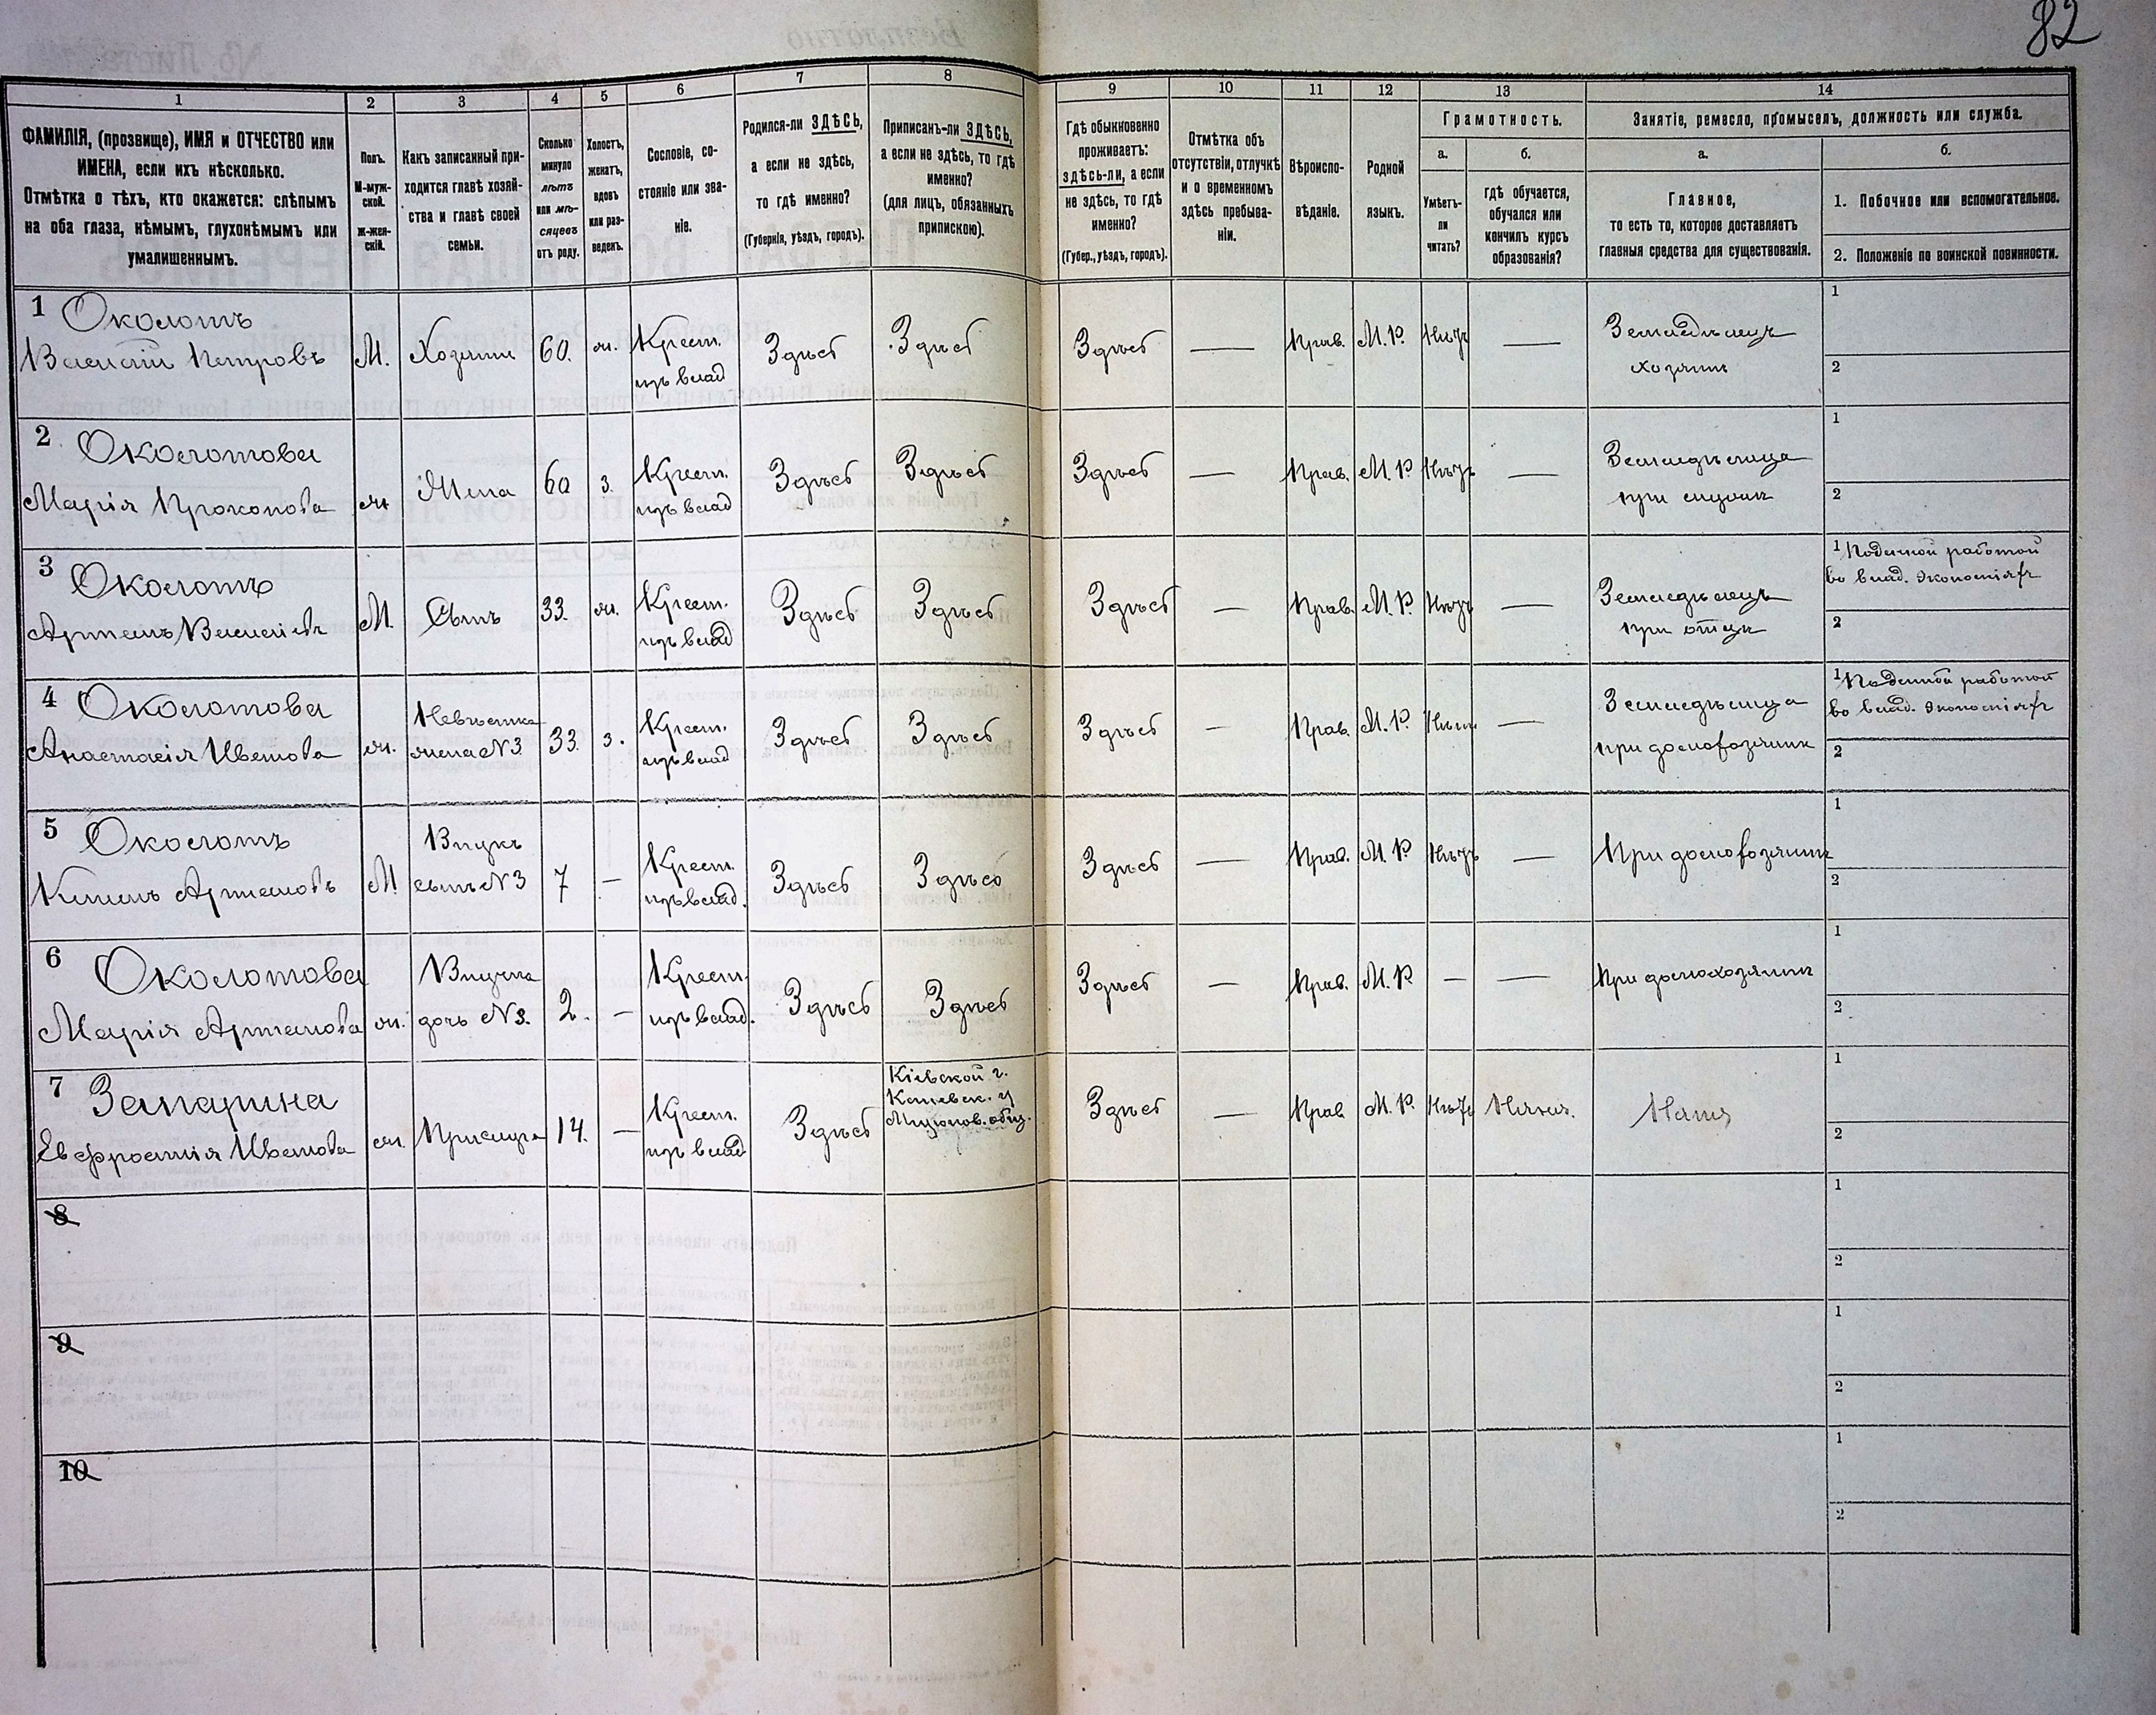 82
1
2
3
4
5
6
7
8
9
10
11
12
13
14
ФАМИЛІЯ, (прозвище), ИМЯ и ОТЧЕСТВО или
ИМЕНА, если ихъ нѣсколько.
Отмѣтка о тѣхъ, кто окажется: слѣпымъ
на оба глаза, нѣмымъ, глухонѣмымъ или
умалишеннымъ.
Полъ.
М-муж-
ской.
Ж-жен-
скій.
Какъ записанный при-
ходится главѣ хозяй-
ства и главѣ своей
семьи.
Сколько
минуло
лѣтъ
или мѣ-
сяцевъ
отъ роду.
Холостъ,
женатъ,
вдовъ
или раз-
веденъ.
Сословіе, со-
стояніе или зва-
ніе.
Родился-ли ЗДѢСЬ,
а если не здѣсь,
то гдѣ именно?
(Губернія, уѣздъ, городъ).
Приписанъ-ли ЗДѢСЬ,
а если не здѣсь, то гдѣ
именно?
(для лицъ, обязанныхъ
припискою).
Гдѣ обыкновенно
проживаетъ:
здѣсь-ли, а если
не здѣсь, то гдѣ
именно?
(Губер., уѣздъ, городъ).
Отмѣтка объ
отсутствіи, отлучкѣ
и о временномъ
здѣсь пребыва-
ніи.
Вѣроиспо-
вѣданіе.
Родной
языкъ.
Грамотность.
а.
Умѣетъ-
ли
читать?
б.
гдѣ обучается,
обучался или
кончилъ курсъ
образованія?
Занятіе, ремесло, промыселъ, должность или служба.
а.
Главное,
то есть то, которое доставляетъ
главныя средства для существованія.
б.
1. Побочное или вспомогательное.
2. Положеніе по воинской повинности.
1 Околотъ
Василій Петровъ
М.
Хозяинъ
60.
ж.
Крест.
изъ влад
Здѣсь
Здѣсь
Здѣсь
—
Прав.
М. Р.
Нѣтъ
—
Земледѣлецъ
хозяинъ
1
2
2 Околотова
Марія Прокопова
ж
Жена
60
з.
Крест.
изъ влад
Здѣсь
Здѣсь
Здѣсь
—
Прав.
М. Р
Нѣтъ
—
Земледѣлица
при мужѣ
1
2
3 Околотъ
Артемъ Васильевъ
М.
Сынъ
33.
ж.
Крест.
изъ влад
Здѣсь
Здѣсь
Здѣсь
—
Прав.
М. Р.
Нѣтъ
—
Земледѣлецъ
при отцѣ
1 Поденной работой
во влад. экономіяхъ
2
4 Околотова
Анастасія Иванова
ж.
Невѣстка
жена N3
33.
з.
Крест.
изъ влад
Здѣсь
Здѣсь
Здѣсь
—
Прав.
М. Р
Нѣтъ
—
Земледѣлица
при домохозяинѣ
1 Поденной работой
во влад. экономіяхъ
2
5 Околотъ
Артемовъ
М
Внукъ
сынъ N3
7
—
Крест.
изъ влад.
Здѣсь
Здѣсь
Здѣсь
—
Прав.
М. Р
Нѣтъ
—
При домохозяинѣ
1
2
6 Околотова
Марія Артемова
ж.
Внучка
дочь N3.
2.
—
Крест.
изъ влад.
Здѣсь
Здѣсь
Здѣсь
—
Прав.
М. Р
—
—
При домохозяинѣ
1
2
7 Запарина
Евфросинія Иванова
ж.
Прислуга
14.
—
Крест.
изъ влад
Здѣсь
Кіевской г.
Каневск. у
общ.
Здѣсь
—
Прав
М. Р.
Нѣтъ
Няня.
Няня
1
2
8
1
2
9
1
2
10
1
2